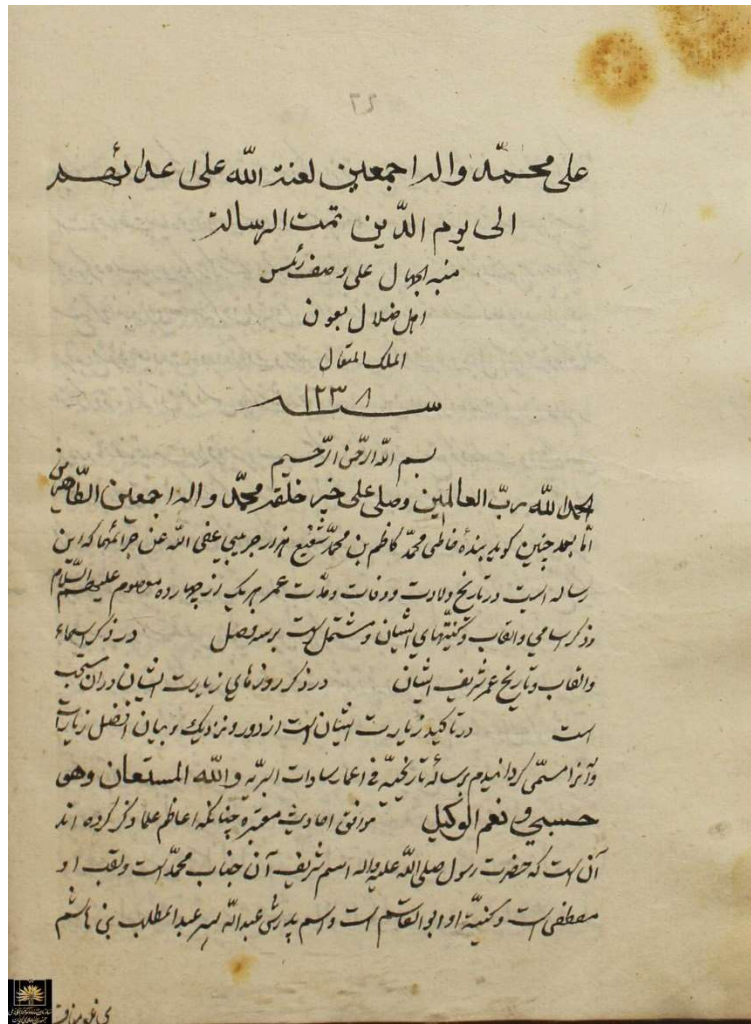 ٤٦
على محمّد واله اجمعين لعنة الله على اعدائهم
الى يوم الدّين تمت الرسالة
منبه الجهال على وصف رئيس
اهل ضلال بعون
الملك المتعال
سنة ١٢٣٨
بسم الله الرّحمن الرّحيم
الحمد لله ربّ العالمين وصلى على خير خلقه محمّد واله اجمعين الطّاهرين
امّا بعد چنين كويد بندهٔ فاطمى محمّد كاظم بن محمّد شفيع هزار جريبي عفى الله عن جرائمهما كه اين
رساله ايست در تاريخ ولادت ووفات ومدّت عمر هر يك از چهارده معصوم عليهم السّلام
وذكر اسامي والقاب وكنيّتهاي ايشان ومشتمل است بر سه فصل در ذكر اسماء
والقاب وتاريخ عمر شريف ايشان در ذكر روزهاي زيارت ايشان در ان مستحب
است در تاكيد زيارت ايشان است از دور ونزديك وبيان افضل زيارات
وآنرا مسمّى كردانيدم برسالهٔ تاريخيّه في اعمار سادات البريّه والله المستعان وهو
حسبي ونعم الوكيل موافق احاديث معتبره چنانكه اعاظم علما ذكر كرده اند
آن است كه حضرت رسول صلى الله عليه واله اسم شريف آن جناب محمّد است ولقب او
مصطفى است وكنيّهٔ او ابو القاسم است واسم پدرش عبد الله پسر عبد المطلب بن هاشم